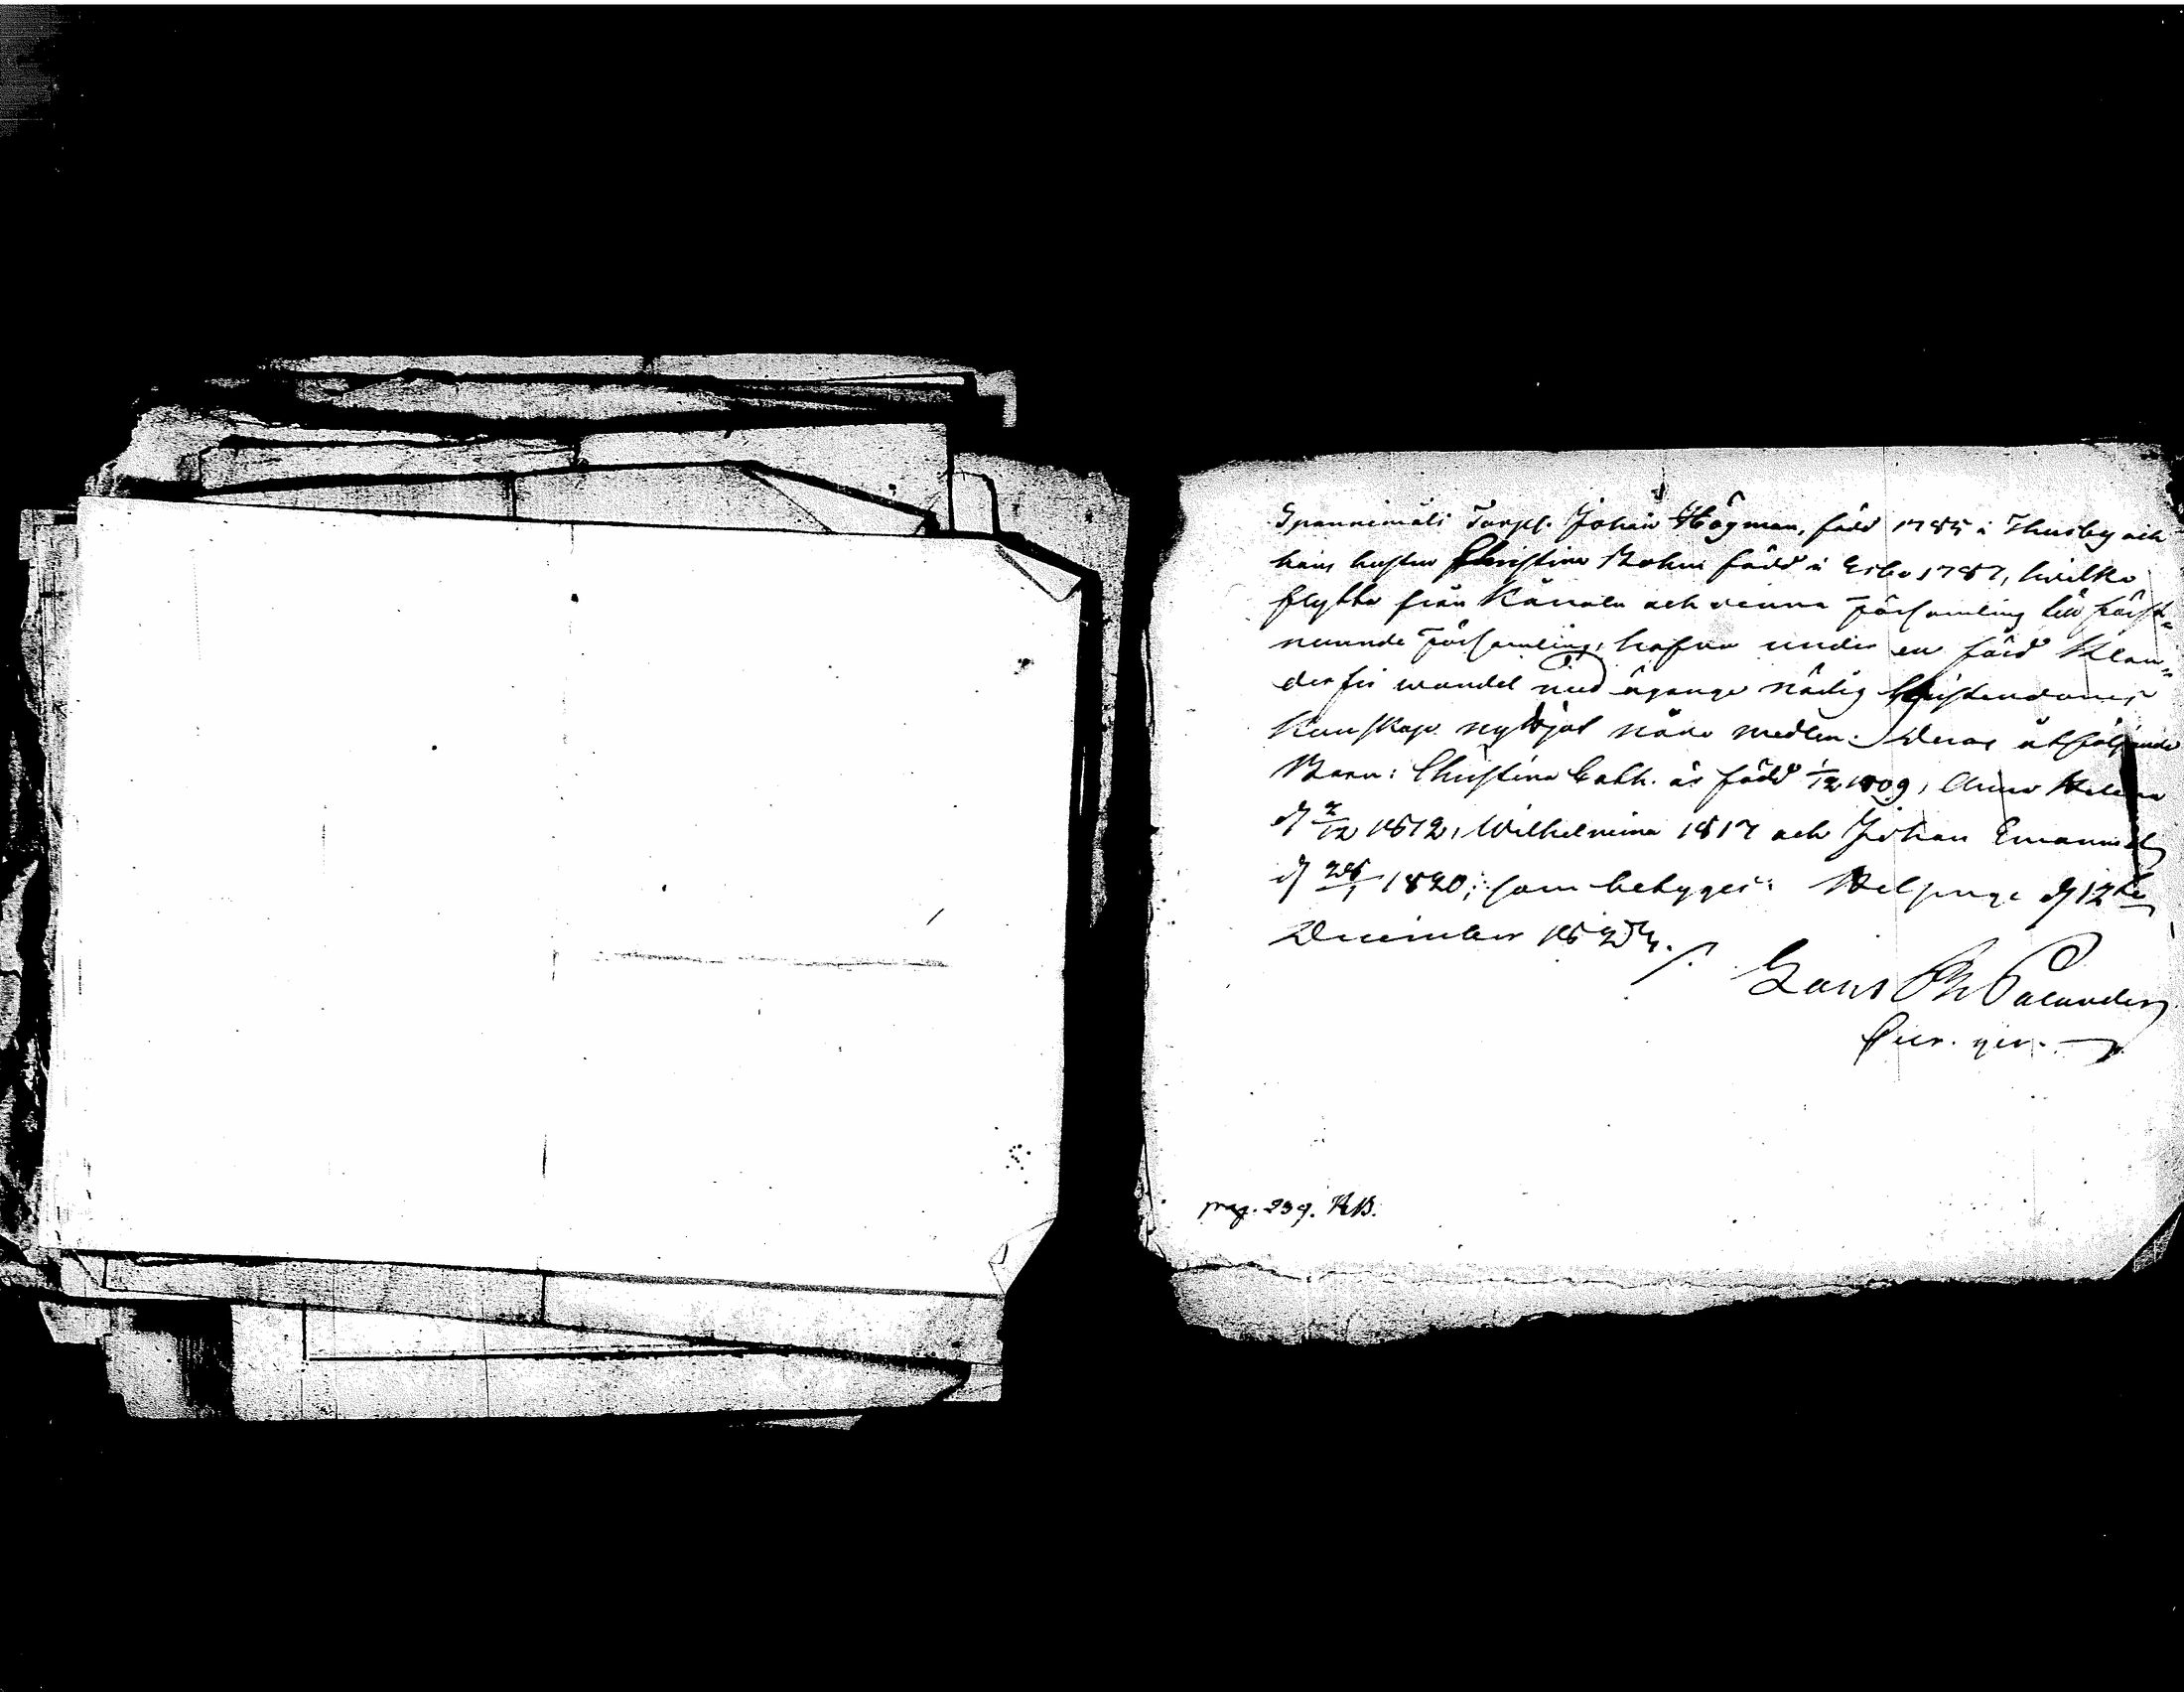 Spannemåls Torp. Johan Högman, född 1785 i Thusby och
hans hustru Christina Bohm född i Esbo 1787, hvilka
flytta från Kånala och denna församling till först-
nemnde församling, hafva under en förd klan-
derfri wandel med ägange nödig Christendoms
kunskap nyttjat nåde medlen. Deras åtföljande
Barn: Christina Cath. är född 1/12 1809, Anna Helena
d 2/12 1812, Wilhelmina 1817 och Johan Emanuel
d 28/1 1820, som betygas. Helsinge d 12te
December 182
Palander
pag. 239. KB.